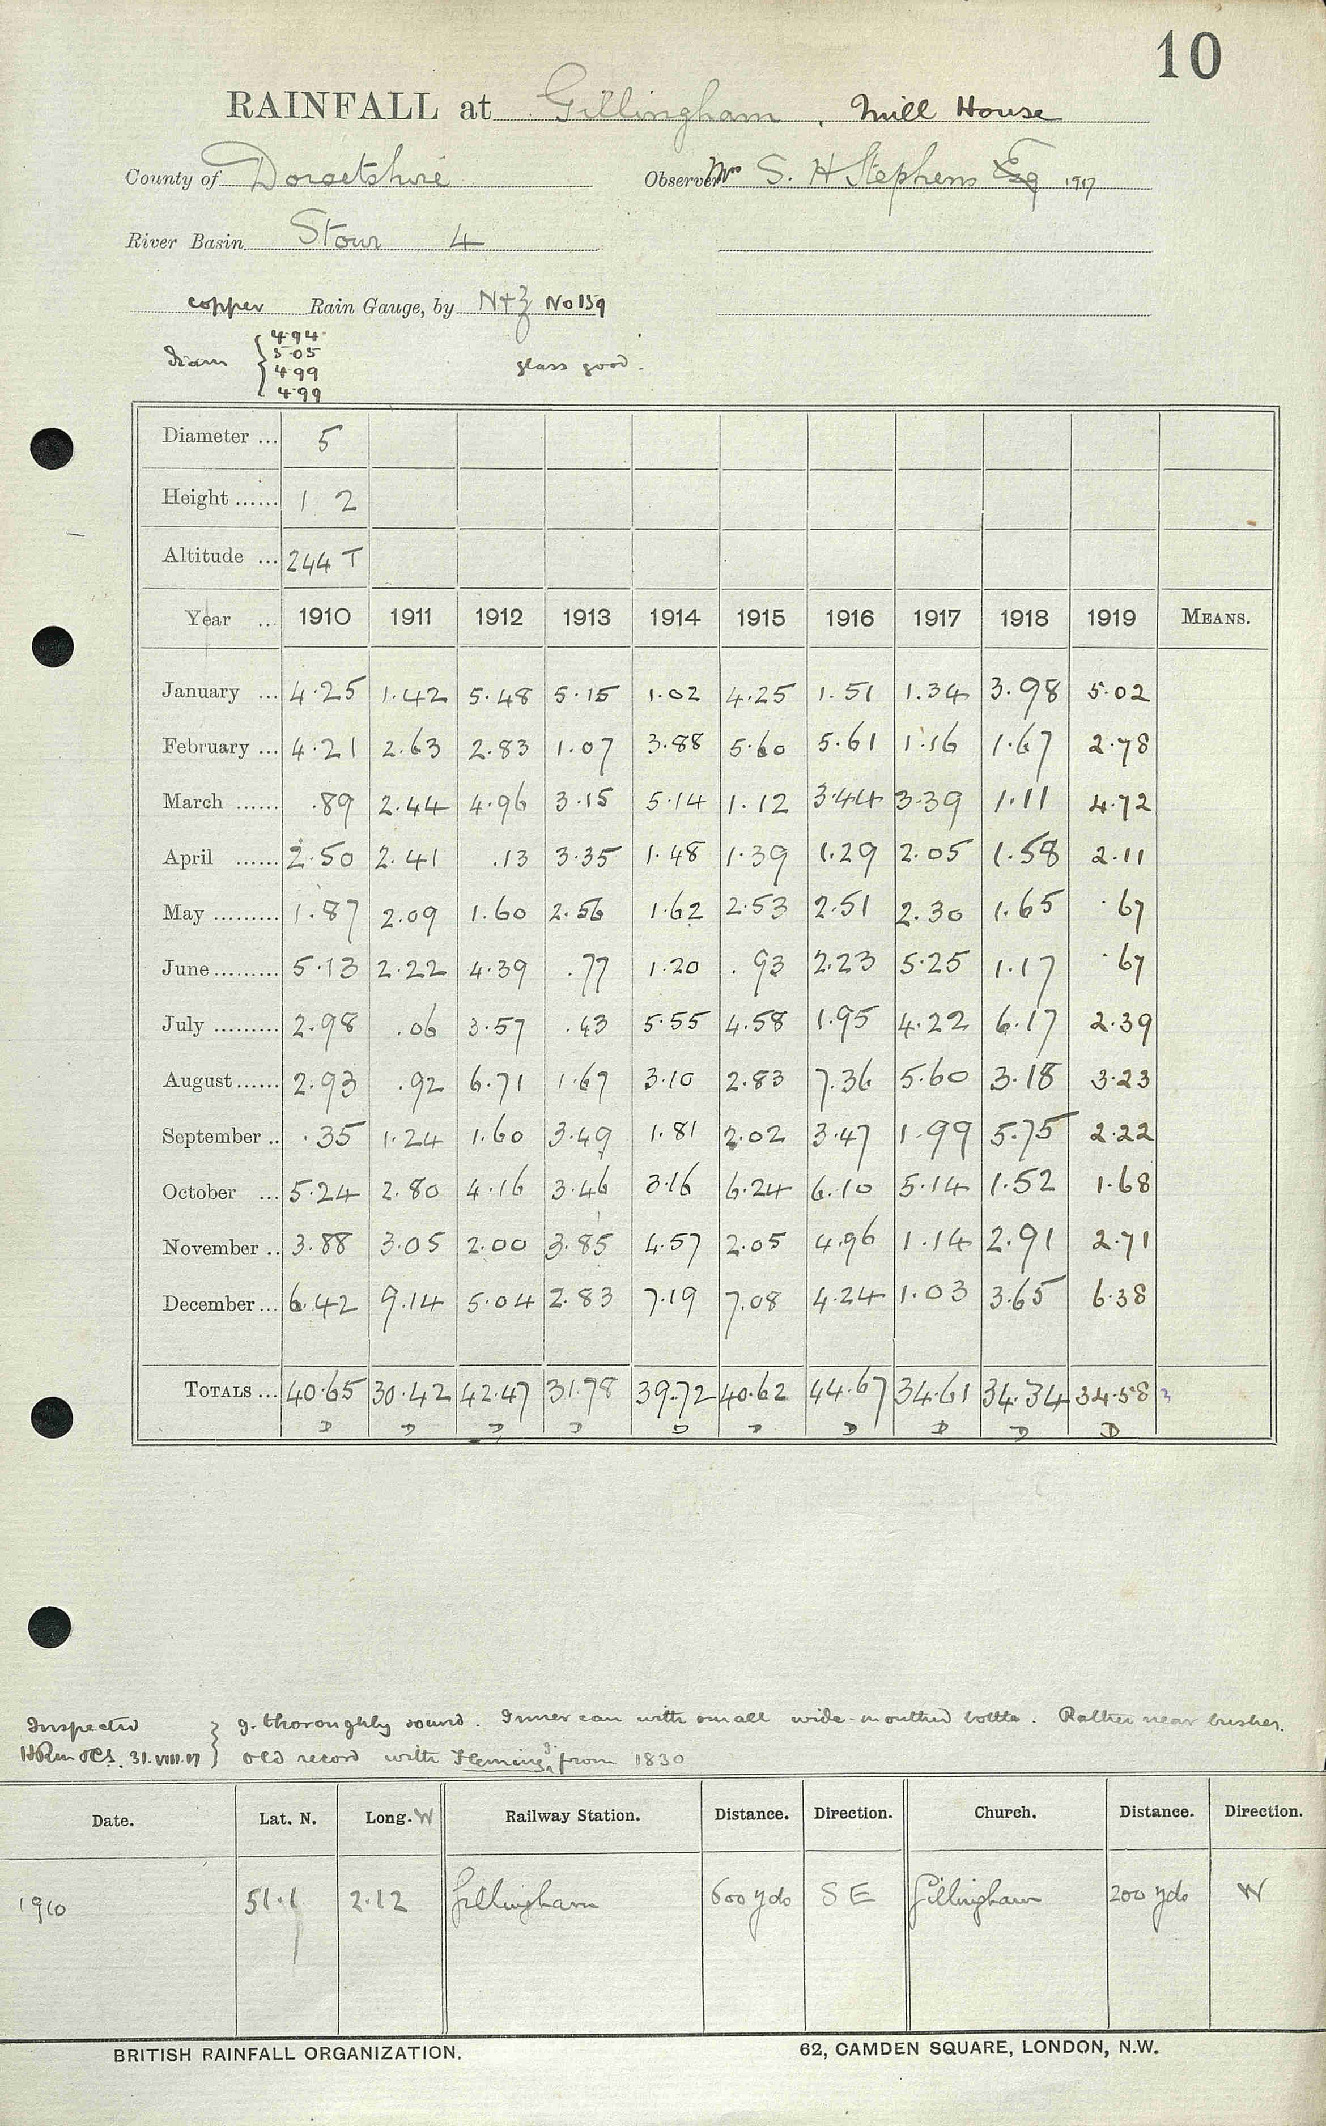 10
RAINFALL at Gillingham, Mill House
County of Dorsetshire Observer Mr S. H Stephens Esq 1917
River Basin Stour 4
copper Rain Gauge, by N+Z No 159
Diam { 4.94 5.05 4.99 4.99 glass good.
Diameter ... 5
Height ...... 1 2
Altitude ... 244 T
Year ... 1910 1911 1912 1913 1914 1915 1916 1917 1918 1919 MEANS.
January ... 4.25 1.42 5.48 5.15 1.02 4.25 1.51 1.34 3.98 5.02
February ... 4.21 2.63 2.83 1.07 3.88 5.60 5.61 1.16 1.67 2.78
March ...... .89 2.44 4.96 3.15 5.14 1.12 3.44 3.39 1.11 4.72
April ...... 2.50 2.41 .13 3.35 1.48 1.39 1.29 2.05 1.58 2.11
May ......... 1.87 2.09 1.60 2.56 1.62 2.53 2.51 2.30 1.65 .67
June ......... 5.13 2.22 4.39 .77 1.20 .93 2.23 5.25 1.17 .67
July ......... 2.98 .06 3.57 .43 5.55 4.58 1.95 4.22 6.17 2.39
August ...... 2.93 .92 6.71 1.67 3.10 2.83 7.36 5.60 3.18 3.23
September .. .35 1.24 1.60 3.49 1.81 2.02 3.47 1.99 5.75 2.22
October ... 5.24 2.80 4.16 3.46 3.16 6.24 6.10 5.14 1.52 1.68
November .. 3.88 3.05 2.00 3.85 4.57 2.05 4.96 1.14 2.91 2.71
December ... 6.42 9.14 5.04 2.83 7.19 7.08 4.24 1.03 3.65 6.38
TOTALS ... 40.65 30.42 42.47 31.78 39.72 40.62 44.67 34.61 34.34 34.58
D D D D D D D D D D
Inspected } g. thoroughly sound. Inner can with small wide-mouthed bottle. Rather near bushes.
31.VIII.17 } old record with Fleming from 1830
Date. Lat. N. Long. W Railway Station. Distance. Direction. Church. Distance. Direction.
1910 51.1 2.12 Gillingham 600 yds S E Gillingham 200 yds W
BRITISH RAINFALL ORGANIZATION. 62, CAMDEN SQUARE, LONDON, N.W.